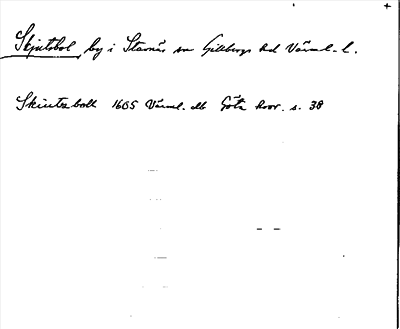 Skjutsbol, by i Stavnäs sn Gillbergs hd Värml. l.
Skiutzboll 1665 Värml. db Göta hovr. s. 38